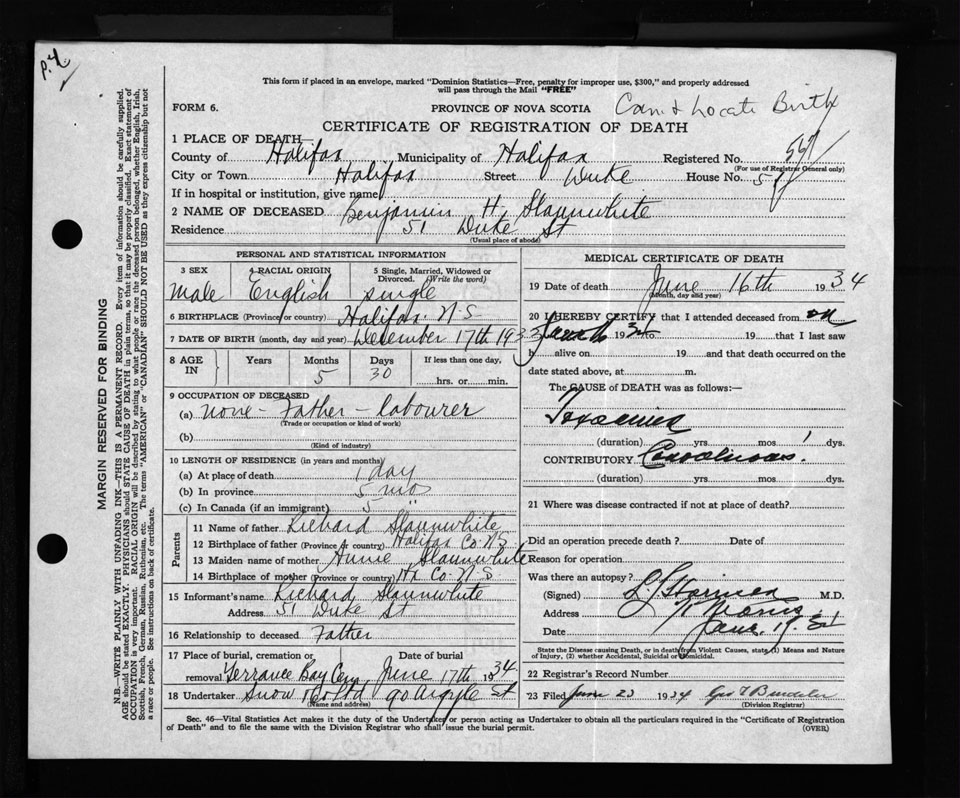 p.4
This form if placed in an envelope, marked "Dominion Statistics—Free, penalty for improper use, $300," and properly addressed
will pass through the Mail "FREE"
FORM 6.
PROVINCE OF NOVA SCOTIA
Can't Locate Birth
CERTIFICATE OF REGISTRATION OF DEATH
1 PLACE OF DEATH—
County of Halifax Municipality of Halifax Registered No.
(For use of Registrar General only)
City or Town Halifax Street Duke House No. 51
If in hospital or institution, give name
2 NAME OF DECEASED Benjamin H. Slaunwhite
Residence 51 Duke St
(Usual place of abode)
PERSONAL AND STATISTICAL INFORMATION
3 SEX
male
4 RACIAL ORIGIN
English
5 Single, Married, Widowed or Divorced. (Write the word)
single
6 BIRTHPLACE (Province or country) Halifax N.S
7 DATE OF BIRTH (month, day and year) December 17th 1933
8 AGE IN Years Months Days If less than one day,
5 30 hrs. or min.
9 OCCUPATION OF DECEASED
(a) none - Father - labourer
(Trade or occupation or kind of work)
(b)
(Kind of industry)
10 LENGTH OF RESIDENCE (in years and months)
(a) At place of death 1 day
(b) In province 5 mos
(c) In Canada (if an immigrant)
Parents
11 Name of father Richard Slaunwhite
12 Birthplace of father (Province or country) Halifax Co. N.S.
13 Maiden name of mother Annie Slaunwhite
14 Birthplace of mother (Province or country) Hx Co. N S
15 Informant's name Richard Slaunwhite
Address 51 Duke St
16 Relationship to deceased Father
17 Place of burial, cremation or removal Date of burial
Terrance Bay Cem June 17th 1934
18 Undertaker Snow & Co Ltd 90 Argyle St
(Name and address)
MEDICAL CERTIFICATE OF DEATH
19 Date of death June 16th 1934
(Month, day and year)
20 I HEREBY CERTIFY that I attended deceased from on
1934 to 19 that I last saw
h alive on 19 and that death occurred on the
date stated above, at m.
The CAUSE OF DEATH was as follows:—
Toxaemia
(duration) yrs. mos 1 dys.
CONTRIBUTORY Convulsions.
(duration) yrs. mos. dys.
21 Where was disease contracted if not at place of death?
Did an operation precede death? Date of
Reason for operation
Was there an autopsy?
(Signed) M.D.
Address
Date June 19. 34
State the Disease causing Death, or in death from Violent Causes, state (1) Means and Nature of Injury, (2) whether Accidental, Suicidal or Homicidal.
22 Registrar's Record Number
23 Filed June 23 1934
(Division Registrar)
Sec. 46—Vital Statistics Act makes it the duty of the Undertaker or person acting as Undertaker to obtain all the particulars required in the "Certificate of Registration
of Death" and to file the same with the Division Registrar who shall issue the burial permit.
(OVER)
MARGIN RESERVED FOR BINDING
N.B.—WRITE PLAINLY WITH UNFADING INK—THIS IS A PERMANENT RECORD. Every item of information should be carefully supplied.
AGE should be stated EXACTLY. PHYSICIANS should STATE CAUSE OF DEATH in plain terms, so that it may be properly classified. Exact statement of
OCCUPATION is very important. RACIAL ORIGIN will be described by stating to what people or race the deceased person belonged, whether English, Irish,
Scottish, French, German, Russian, Ruthenian, etc. The terms "AMERICAN" or "CANADIAN" SHOULD NOT BE USED as they express citizenship but not
a race or people. See instructions on back of certificate.